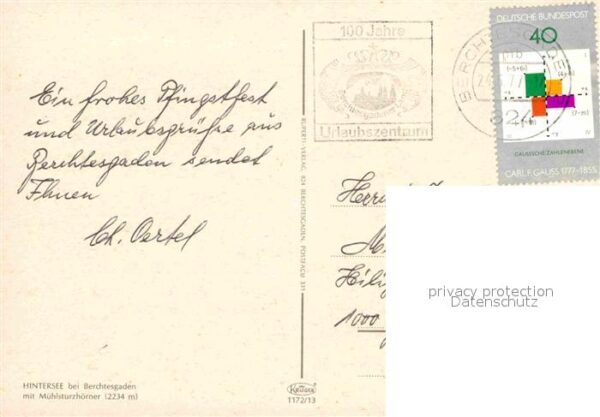 Ein frohes Pfingstfest
und Urlaubsgrüße aus
Berchtesgaden sendet
Ihnen
Ch. Oertel
HINTERSEE bei Berchtesgaden
mit Mühlsturzhörner (2234 m)
RUPERTI-VERLAG, 824 BERCHTESGADEN, POSTFACH 311
Krüger
1172/13
100 Jahre
Urlaubszentrum
BERCHTESGADEN
824
DEUTSCHE BUNDESPOST
40
(-5+6i)
GAUSSSCHE ZAHLENEBENE
CARL F. GAUSS 1777-1855
1000
privacy protection
Datenschutz